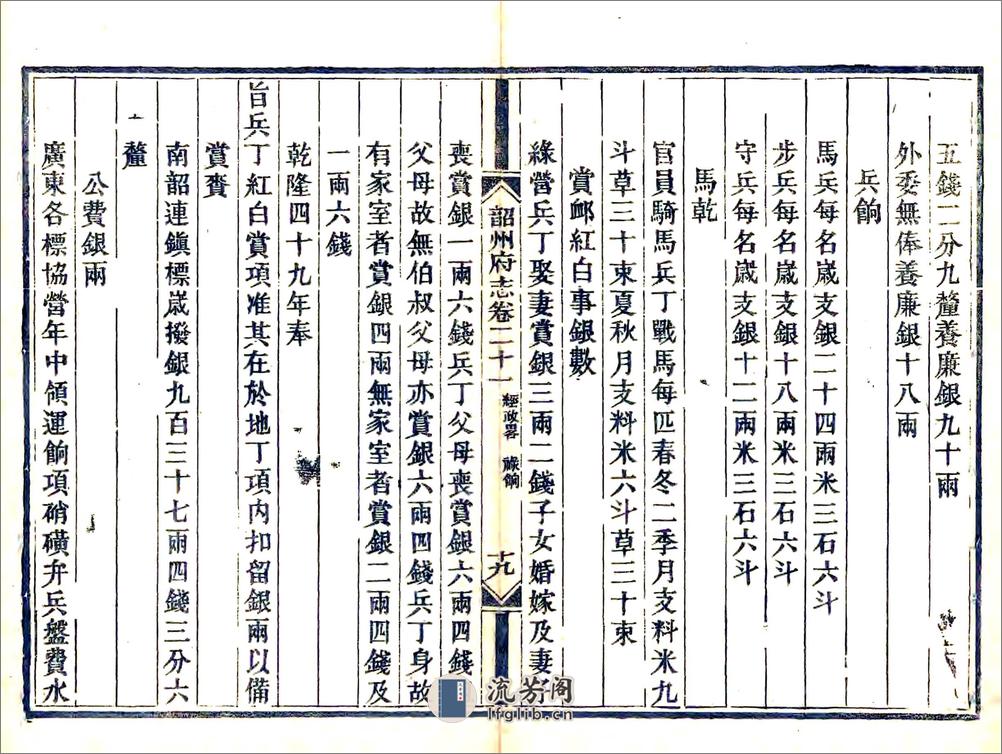 五錢二分九釐養廉銀九十兩
外委無俸養廉銀十八兩
兵餉
馬兵每名歲支銀二十四兩米三石六斗
步兵每名歲支銀十八兩米三石六斗
守兵每名歲支銀十二兩米三石六斗
馬乾
官員騎馬兵丁戰馬每匹春冬二季月支料米九
斗草三十束夏秋月支料米六斗草三十束
賞卹紅白事銀數
綠營兵丁娶妻賞銀三兩二錢子女婚嫁及妻
韶州府志卷二十一 經政畧 祿餉 十九
喪賞銀一兩六錢兵丁父母喪賞銀六兩四錢
父母故無伯叔父母亦賞銀六兩四錢兵丁身故
有家室者賞銀四兩無家室者賞銀二兩四錢及
一兩六錢
乾隆四十九年奉
旨兵丁紅白賞項准其在於地丁項內扣留銀兩以備
賞賚
南韶連鎮標歲撥銀九百三十七兩四錢三分六
釐
公費銀兩
廣東各標協營年中領運餉項硝磺弁兵盤費水
流芳阁
lfglib.cn